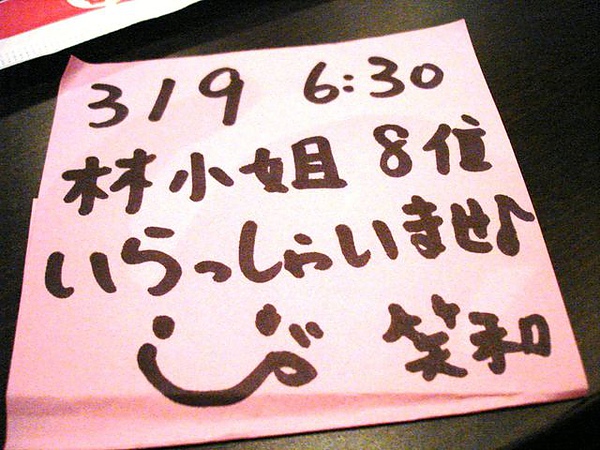 3/9 6:30
林小姐 8位
いらっしゃいませ♪
笑和